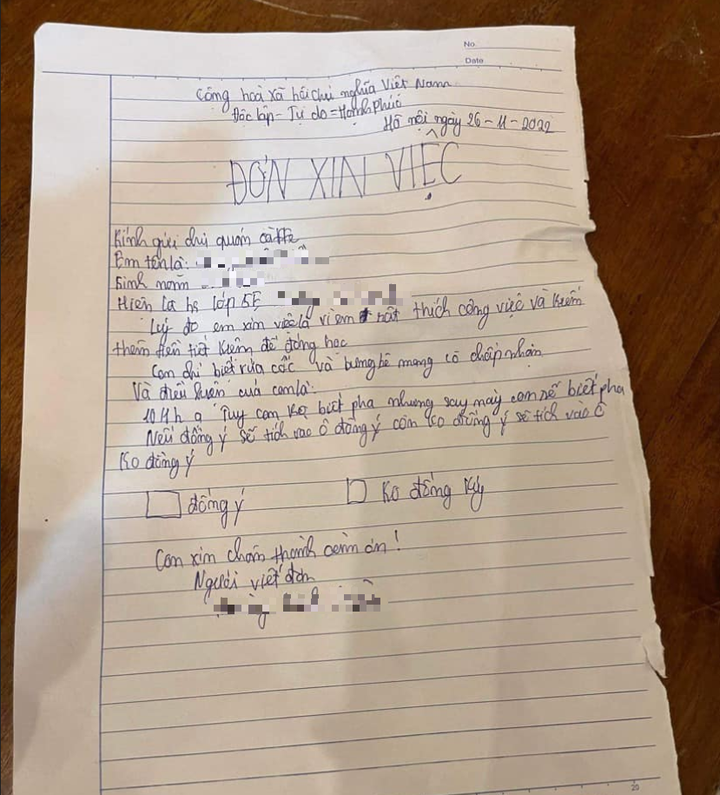 No
Date
Cộng hoà xã hôi chủ nghĩa Việt Nam
Độc lập - Tự do = Hạnh Phúc
Hà nội ngày 26-11-2022
ĐƠN XIN VIỆC
Kính gửi chủ quán cà
Em tên là:
Sinh năm
Hiện là hs lớp 5E
Lý do em xin việc là vì em rất thích công việc và kiếm
thêm tiền tiết kiệm để đóng học
Con chỉ biết rửa cốc và bưng bê mong cô chấp nhận
Và điều kiện của con là:
10 4h ạ Tuy con ko biết pha nhưng sau này con sẽ biết pha
Nếu đồng ý sẽ tích vào ô đồng ý còn ko đồng ý sẽ tích vào ô
Ko đồng ý
đồng ý
Ko đồng ý
Con xin chân thành cảm ơn!
Người viết đơn
20